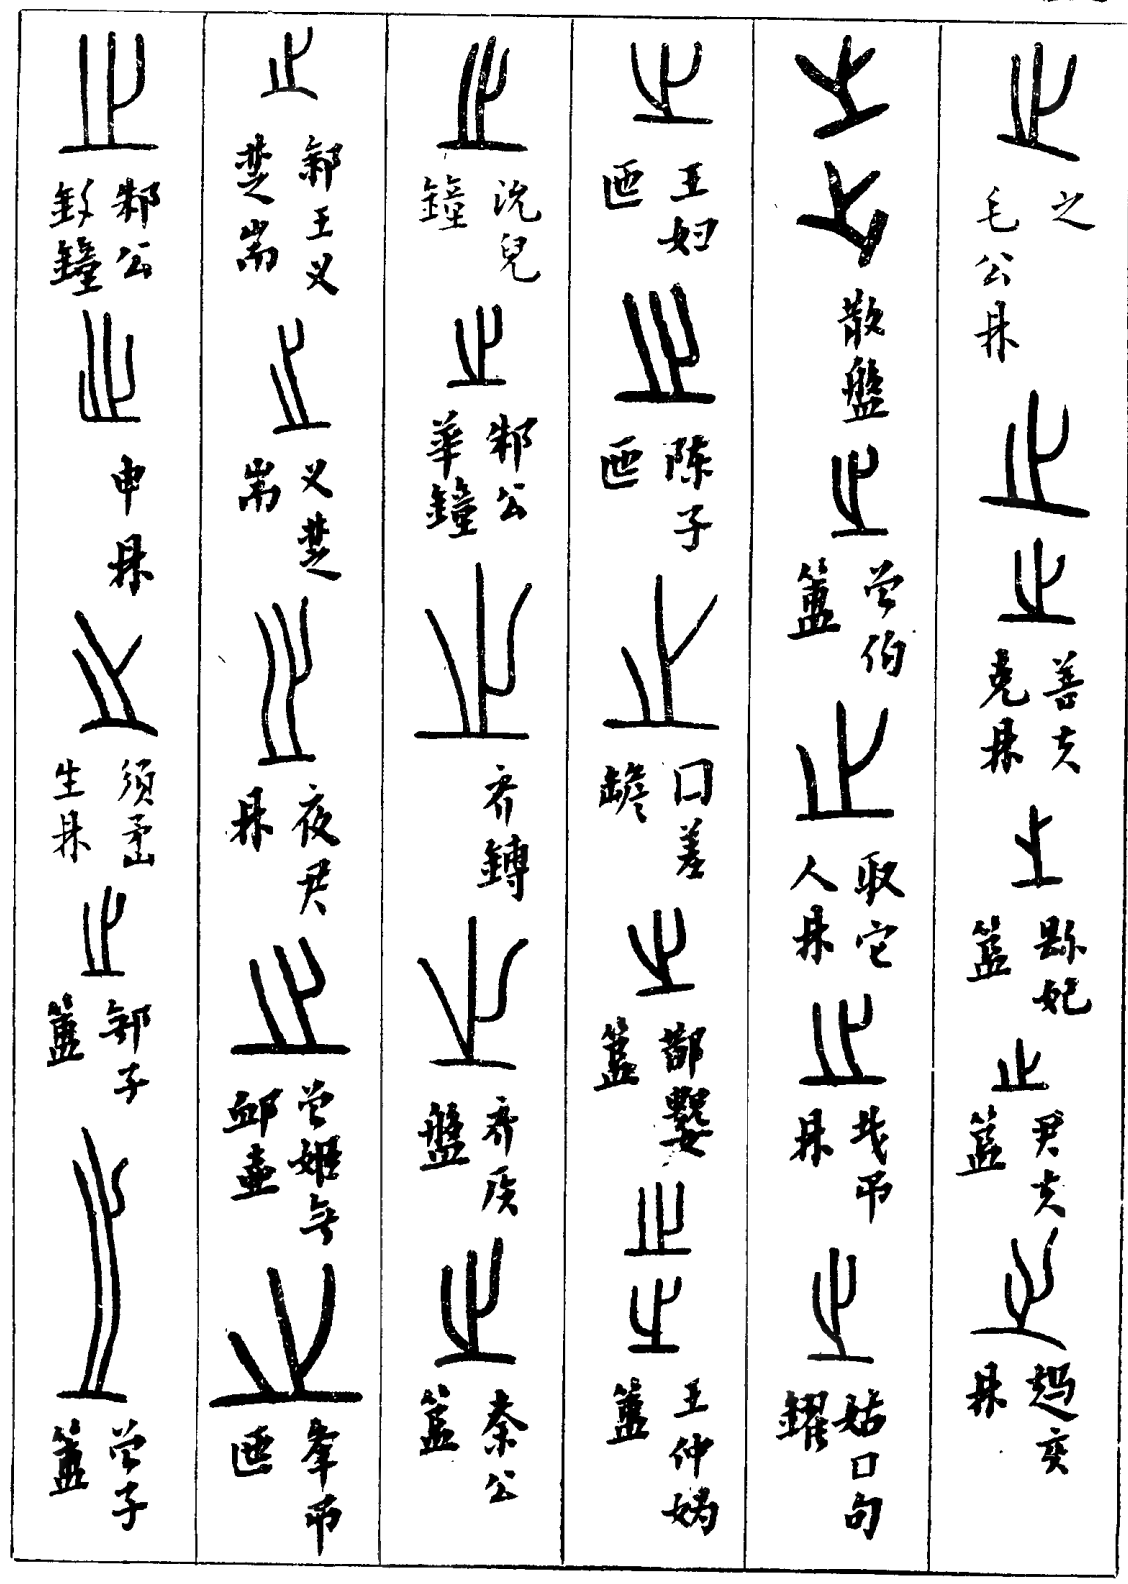 之
毛公鼎
善夫克鼎
縣妃簋
君夫簋
亥鼎
散盤
曾伯簠
取它人鼎
弔鼎
姑口句鑃
王妇匜
陈子匜
口差
簠
王仲媯簠
沇兒鐘
邾公華鐘
齊鎛
齊侯盤
秦公簋
郐王义楚耑
义楚耑
夜君鼎
曾姬無卹壺
夆弔匜
邾公釛鐘
申鼎
須孟生鼎
子簠
曾子簠